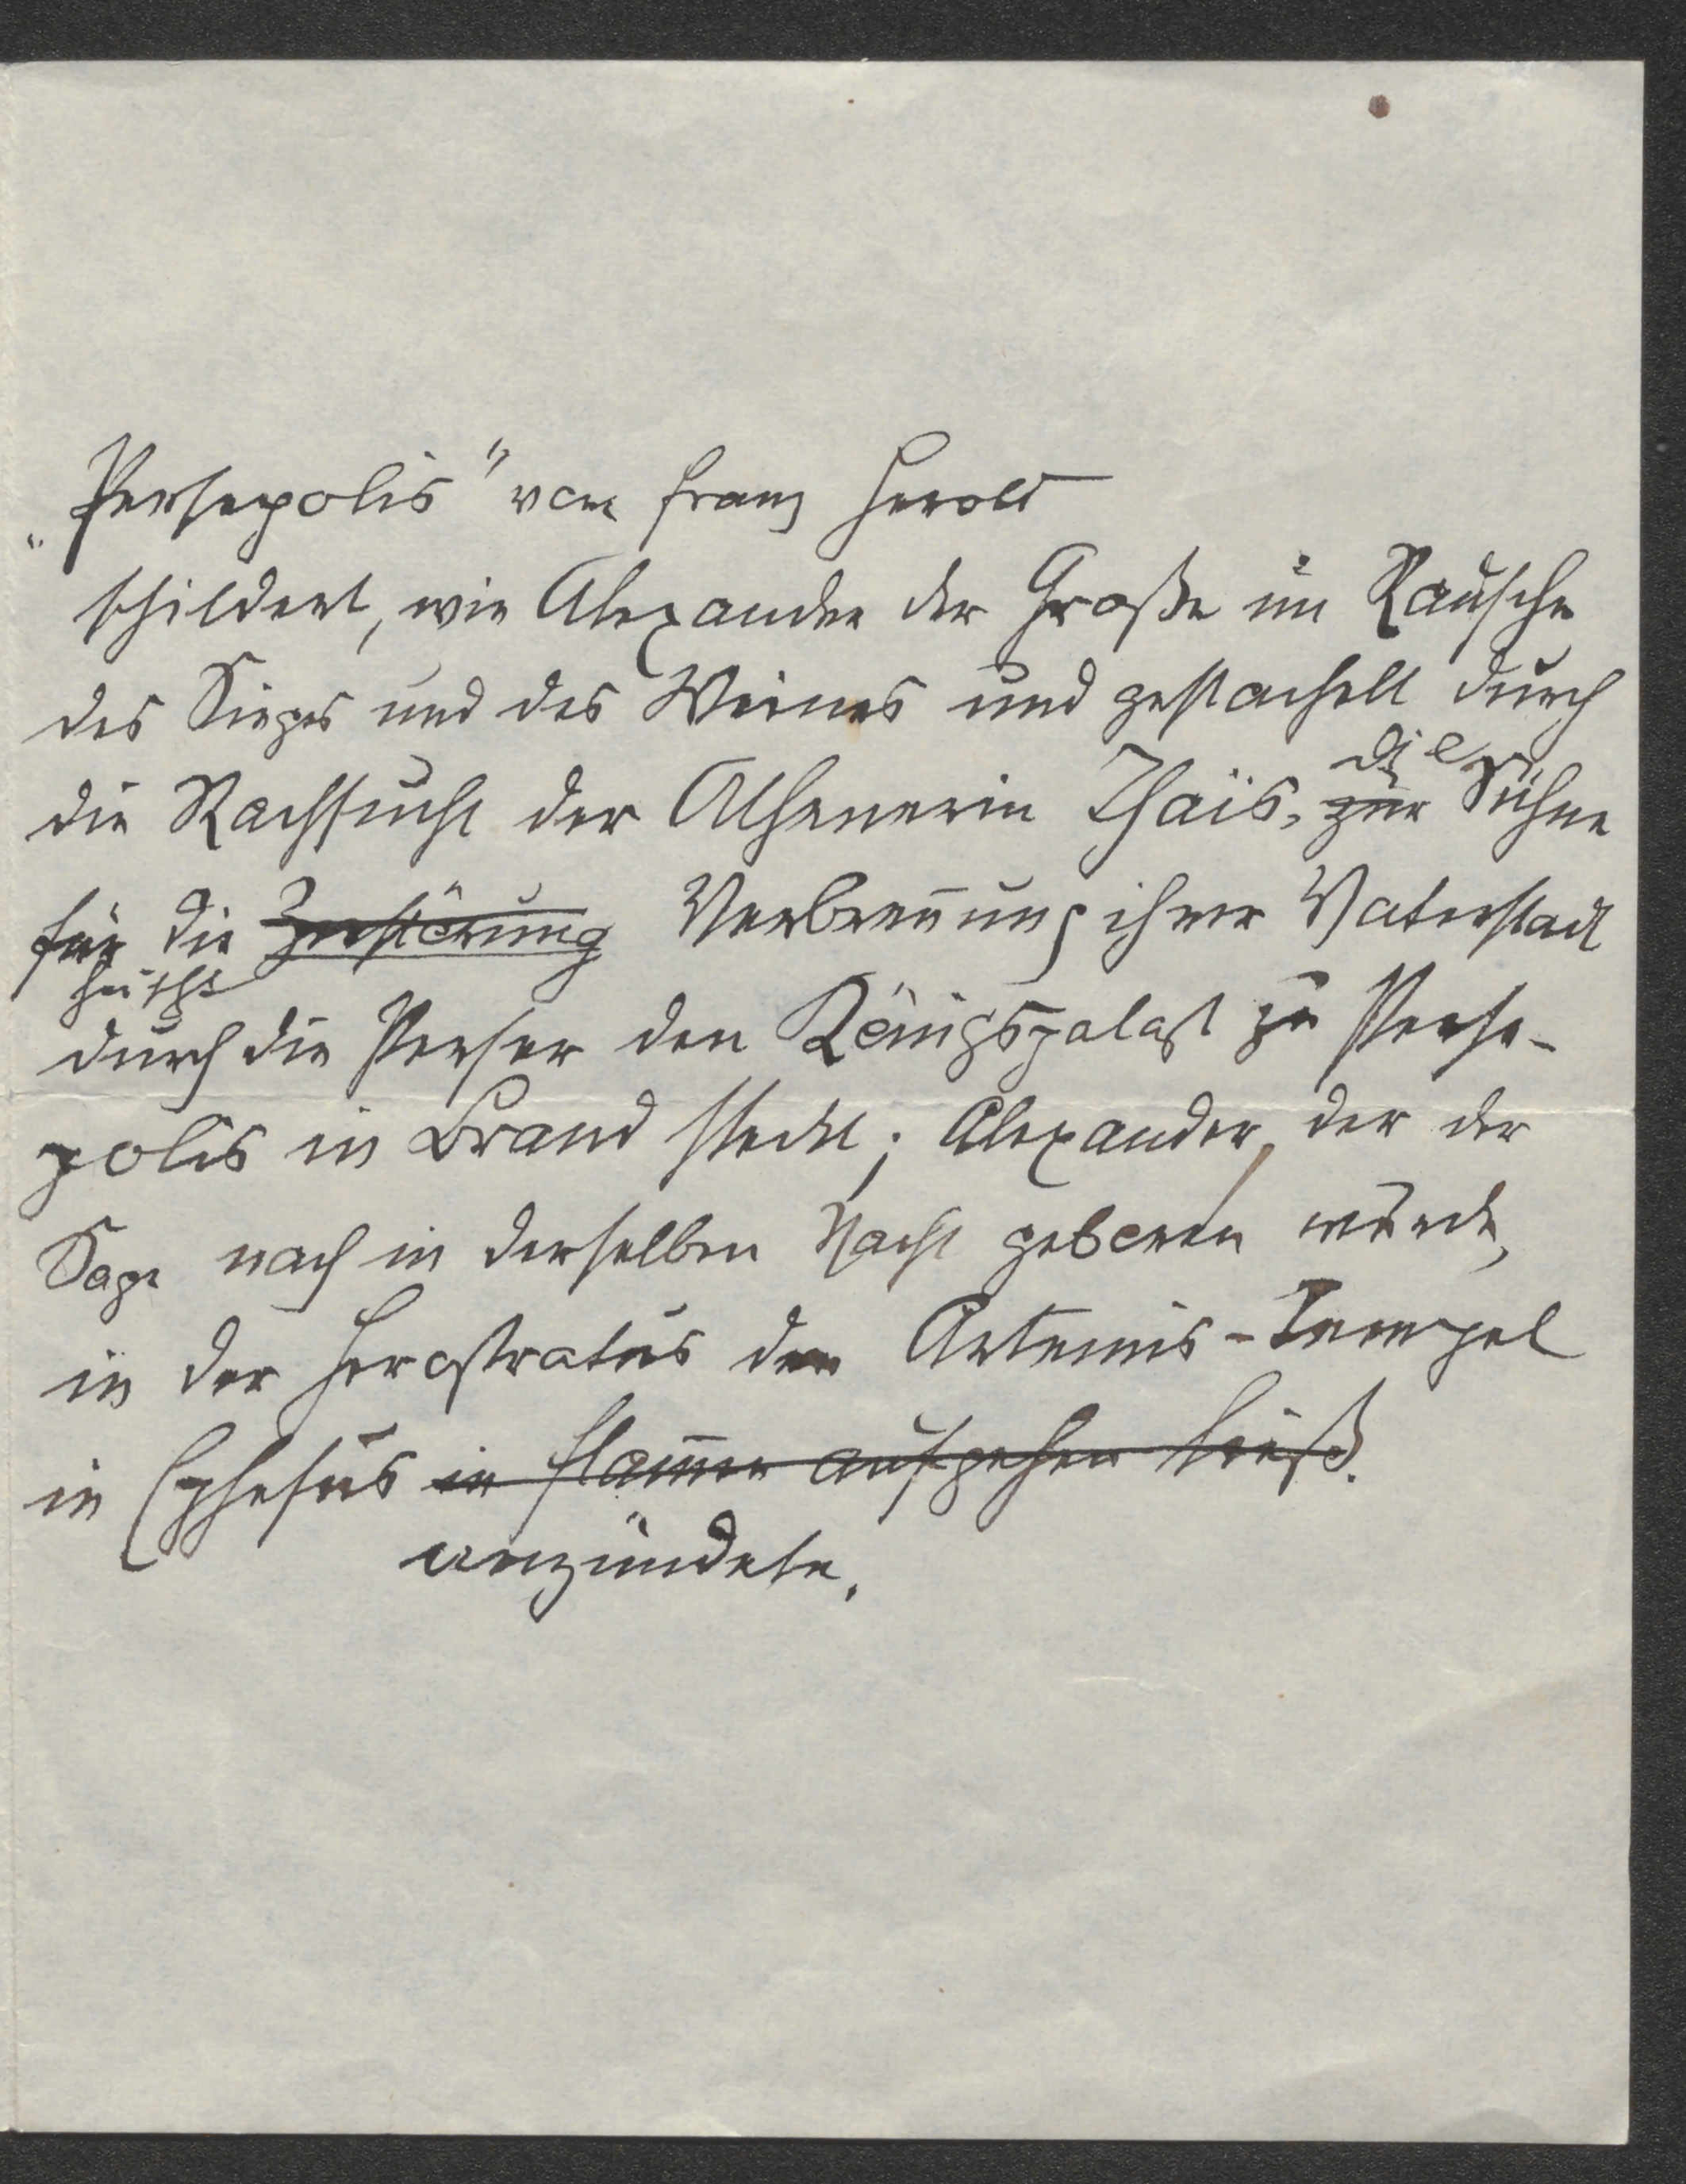 „Persepolis" von Franz Herold
schildert, wie Alexander der Große im Rausche
des Sieges und des Weines und gestachelt durch
die Rachsucht der Athenerin Thaïs, zur Sühne
die
für die Zerstörung Verbrennung ihrer Vaterstadt
sucht
durch die Perser den Königspalast zu Perse-
polis in Brand steckt; Alexander, der der
Sage nach in derselben Nacht geboren wurde,
in der Herostratus den Artemis-Tempel
in Ephesus in Flammen aufgehen ließ.
anzündete.